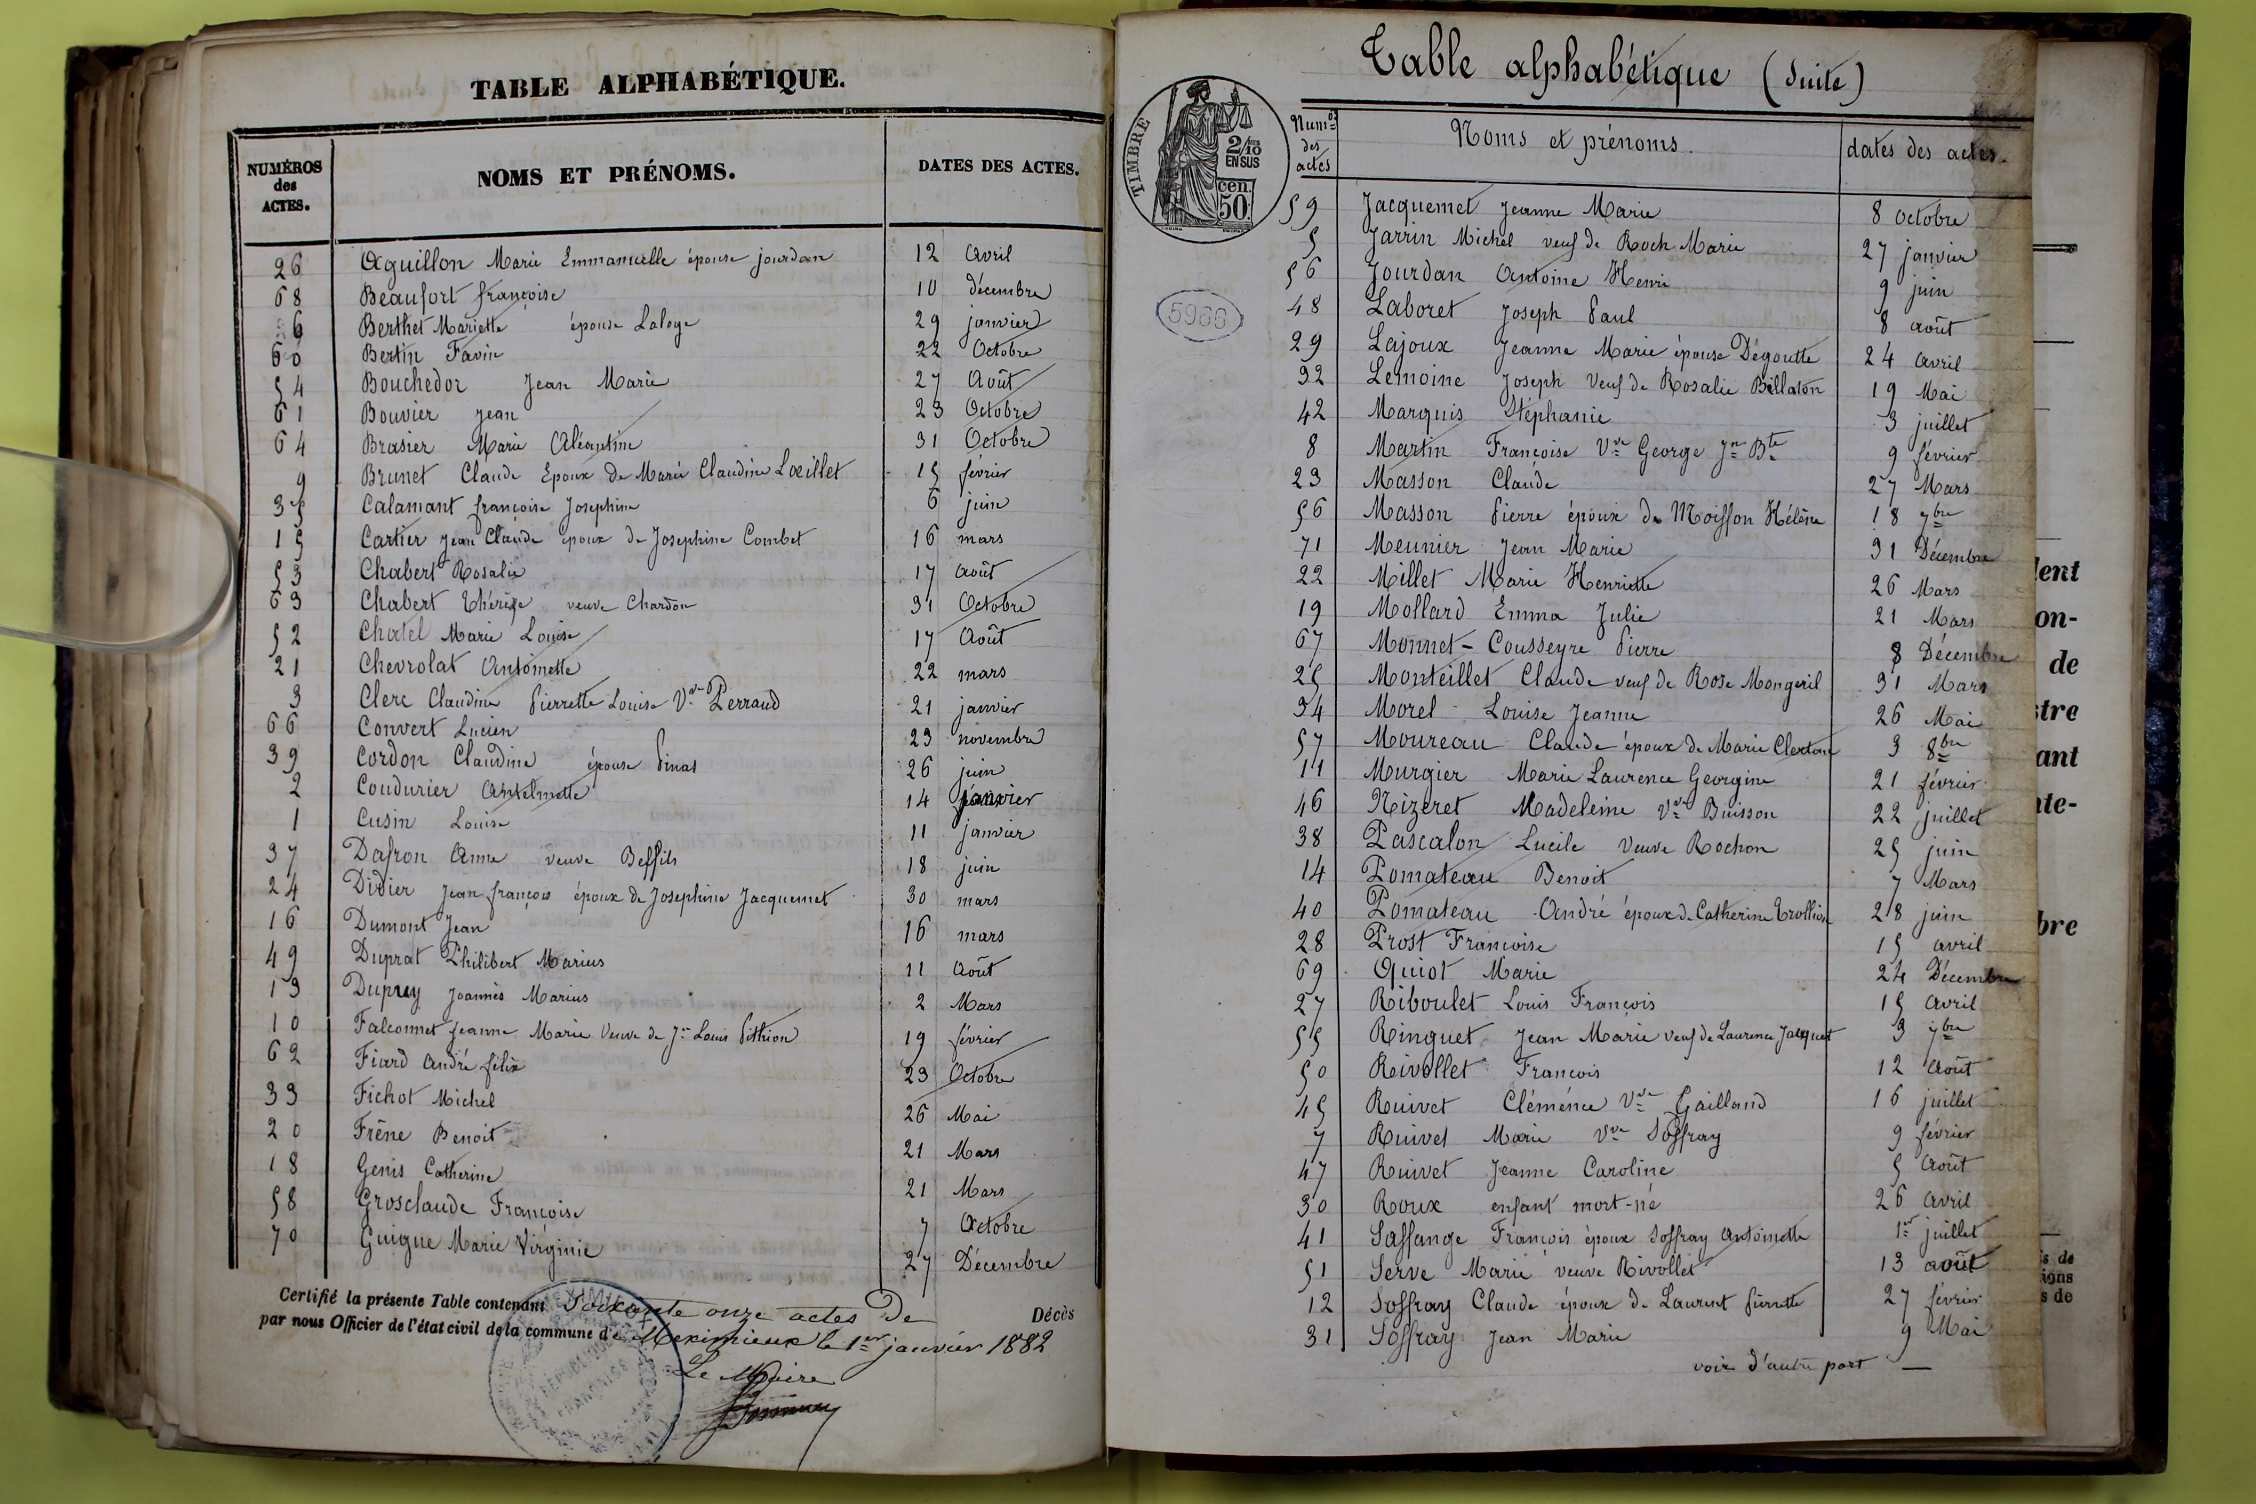 TABLE ALPHABÉTIQUE.
NUMÉROS des ACTES. NOMS ET PRÉNOMS. DATES DES ACTES.
26 Aguillon Marie Emmanuelle épouse jourdan 12 Avril
68 Beaufort françoise 10 décembre
6 Berthet Mariette épouse Laloge 29 janvier
60 Bertin Favin 22 Octobre
54 Bouchedor Jean Marie 27 Août
61 Bouvier Jean 23 Octobre
64 Brasier Marie Aléantine 31 Octobre
9 Brunet Claude Epoux de Marie Claudine Lœillet 15 février
35 Calamant françoise Josephine 6 juin
15 Cartier Jean Claude époux de Josephine Combet 16 mars
53 Chabert Rosalie 17 août
63 Chabert Thérèse veuve Chardon 31 Octobre
52 Chatel Marie Louise 17 Août
21 Chevrolat Antoinette 22 mars
3 Clerc Claudine Pierrette Louise Vve Perraud 21 janvier
66 Convert Lucien 23 novembre
39 Cordon Claudine épouse Pinat 26 juin
2 Coudurier Anthelmette 14 janvier
1 Cusin Louise 11 janvier
37 Dafron Anne veuve Beffils 18 juin
24 Didier Jean françois époux de Josephine Jacquemet 30 mars
16 Dumont Jean 16 mars
49 Duprat Philibert Marius 11 Août
13 Dupuy Joannès Marius 2 Mars
10 Falconnet Jeanne Marie Veuve de Jn Louis Pithion 19 février
62 Fiard André félix 23 Octobre
33 Fichot Michel 26 Mai
20 Frêne Benoit 21 Mars
18 Genis Catherine 21 Mars
58 Grosclaude Françoise 7 Octobre
70 Guigue Marie Virginie 27 Décembre
Certifié la présente Table contenant Soixante onze actes de Décès
par nous Officier de l'état civil de la commune de Meximieux le 1er janvier 1882
Le Maire
RÉPUBLIQUE FRANÇAISE
Table alphabétique (Suite)
TIMBRE
2/10 EN SUS
cen. 50
5966
Numos des actes Noms et prénoms. dates des actes.
59 Jacquemet Jeanne Marie 8 Octobre
5 Jarrin Michel veuf de Roch Marie 27 janvier
56 Jourdan Antoine Henri 9 juin
48 Laboret Joseph Paul 8 août
29 Lajoux Jeanne Marie épouse Dégoutte 24 avril
32 Lemoine Joseph Veuf de Rosalie Billaton 19 Mai
42 Marquis Stéphanie 3 juillet
8 Martin Françoise Vve George Jn Bte 9 février
23 Masson Claude 27 Mars
56 Masson Pierre époux de Moisson Hélène 18 7bre
71 Meunier Jean Marie 31 Décembre
22 Millet Marie Henriette 26 Mars
19 Mollard Emma Julie 21 Mars
67 Monnet-Cousseyre Pierre 8 Décembre
25 Monteillet Claude veuf de Rose Mongeril 31 Mars
34 Morel Louise Jeanne 26 Mai
57 Moureau Claude époux de Marie Clerton 3 8bre
11 Murgier Marie Laurence Georgine 21 février
46 Nizeret Madeleine Vve Buisson 22 juillet
38 Pascalon Lucile Veuve Rochon 25 juin
14 Pomateau Benoit 7 Mars
40 Pomateau André époux de Catherine Trollion 28 juin
28 Prost Françoise 15 avril
69 Quiot Marie 24 Décembre
27 Riboulet Louis François 15 Avril
55 Ringuet Jean Marie veuf de Laurence Jacquet 3 7bre
50 Rivollet François 12 Août
45 Ruivet Clémence Vve Gailland 16 juillet
7 Ruivet Marie Vve Soffray 9 février
47 Ruivet Jeanne Caroline 5 Août
30 Roux enfant mort-né 26 Avril
41 Saffange François époux Soffray Antoinette 1er juillet
51 Serve Marie veuve Rivollet 13 août
12 Soffray Claude époux de Laurent Pierrette 27 février
31 Soffray Jean Marie 9 Mai
voir d'autre part